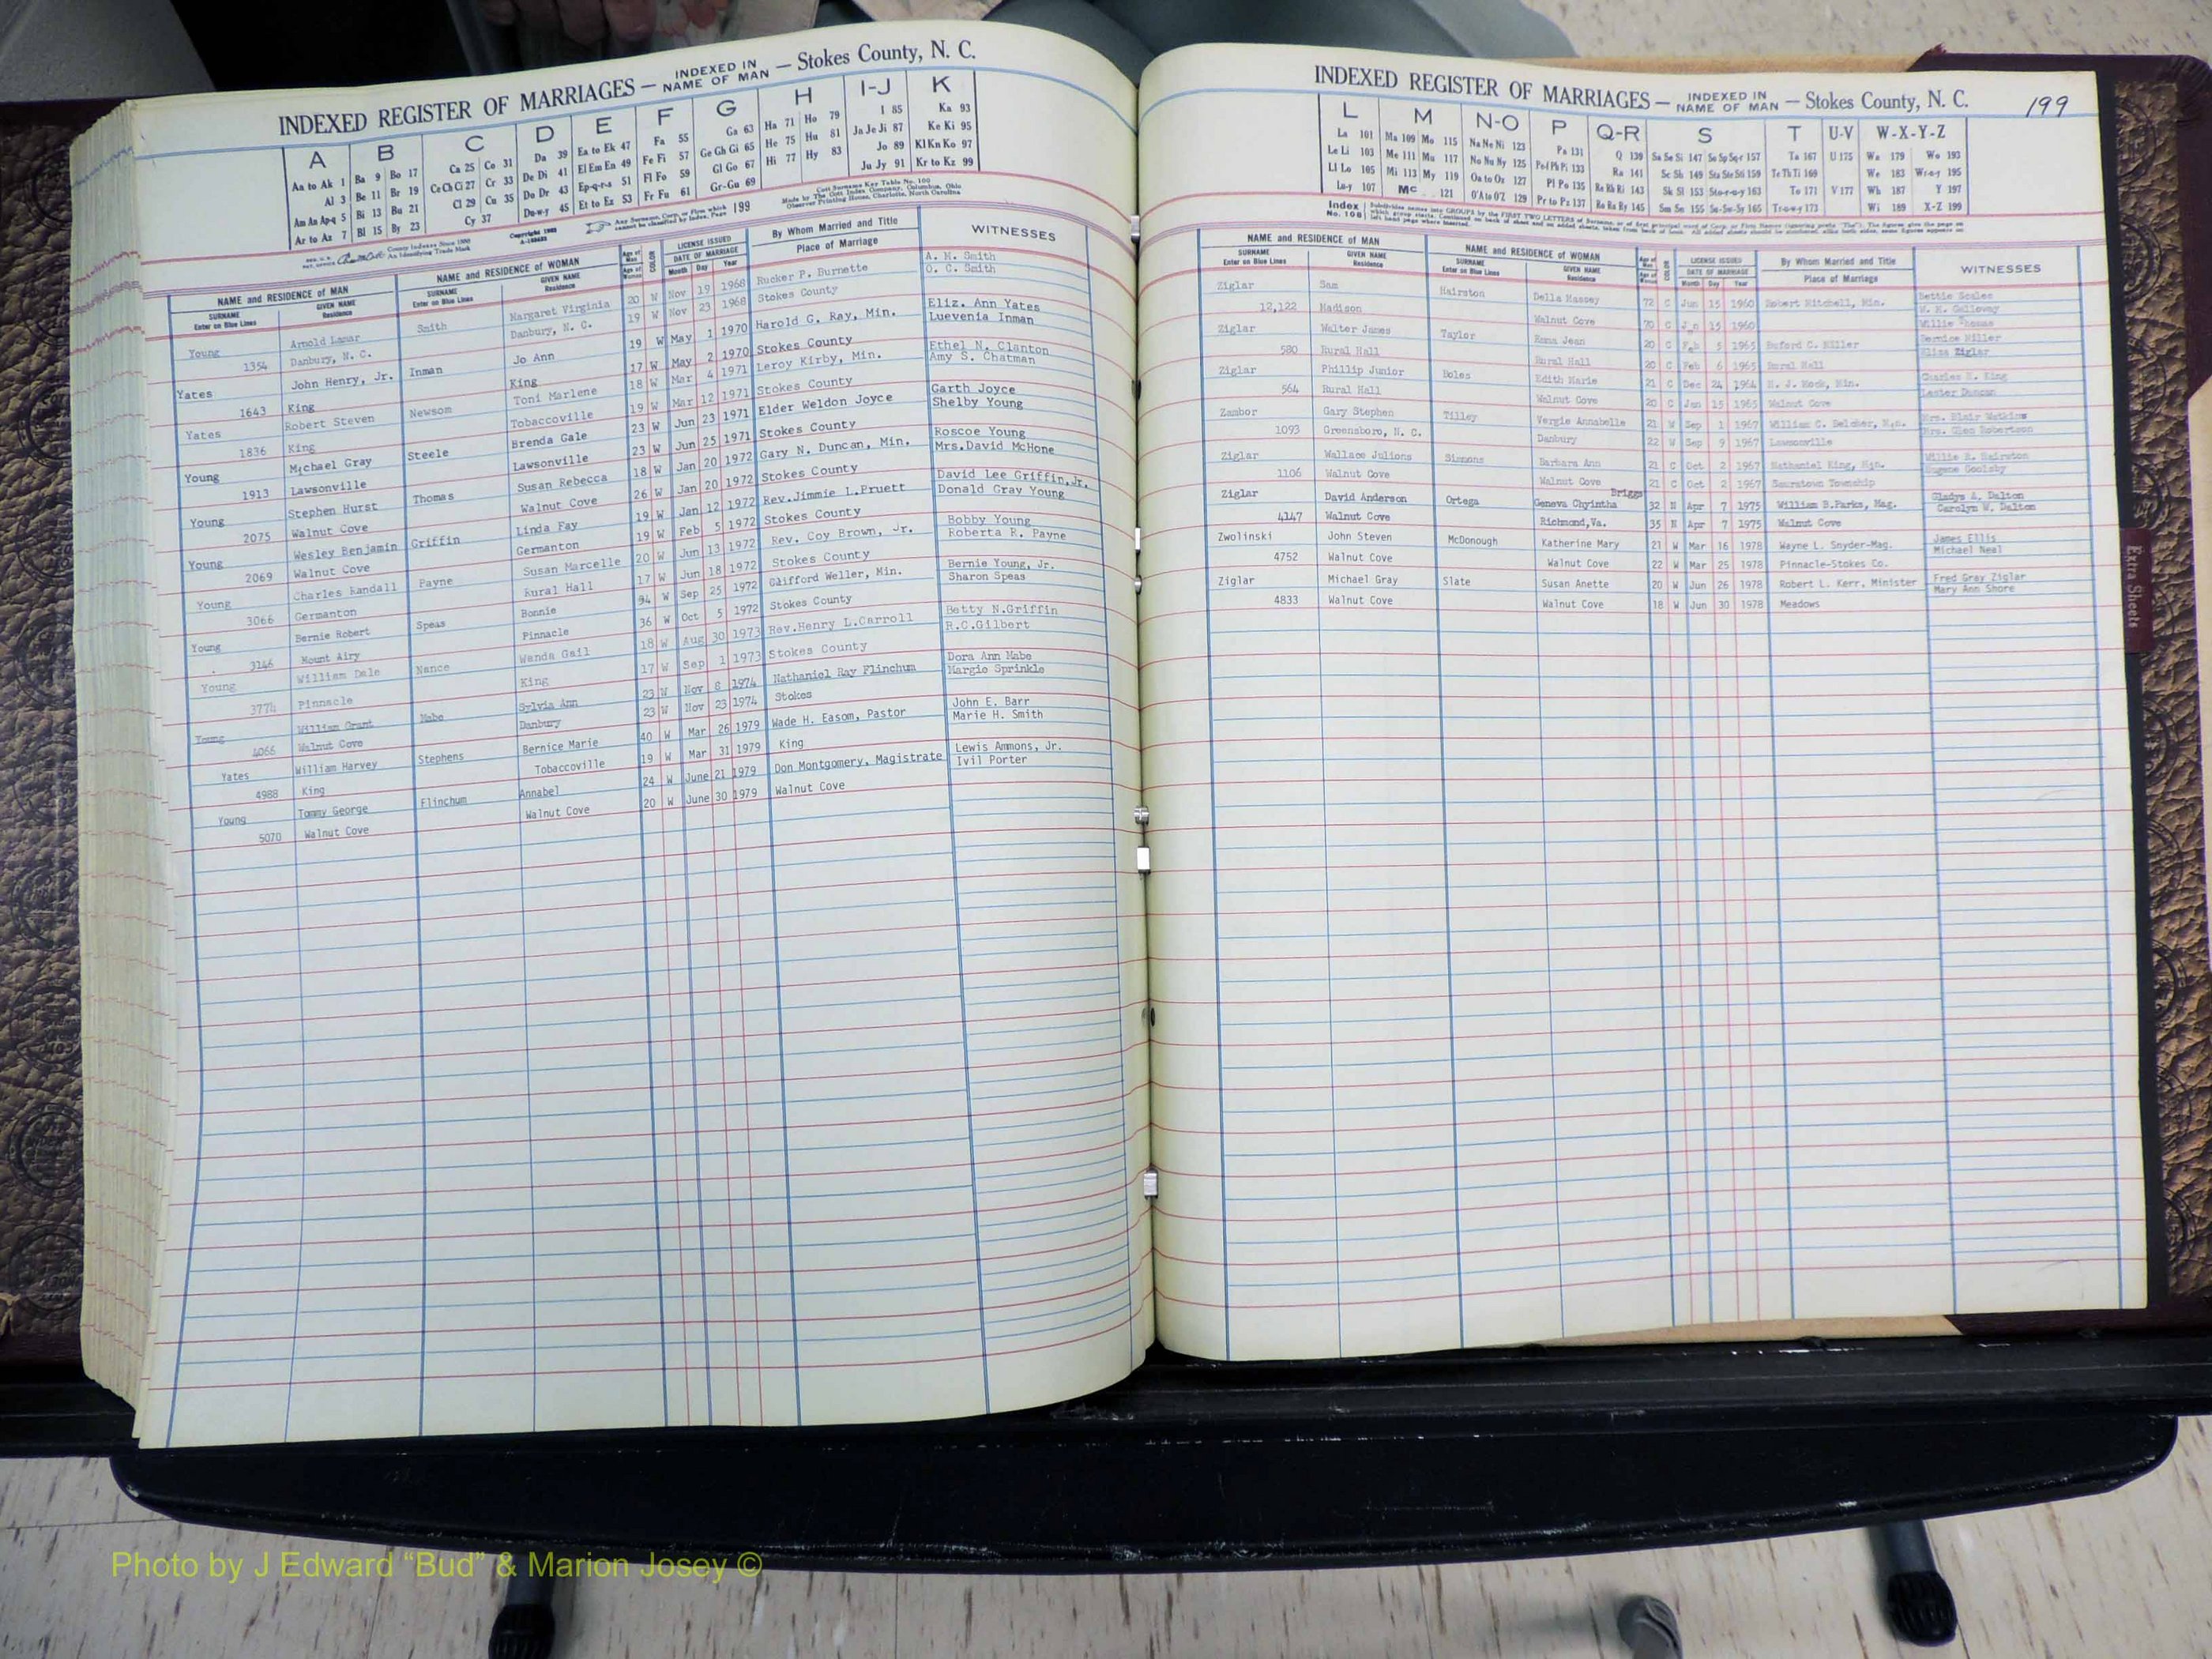 INDEXED REGISTER OF MARRIAGES — INDEXED IN NAME OF MAN — Stokes County, N. C.
A B C D E F G H I-J K
Aa to Ak 1 Ba 9 Bo 17 Ca 25 Co 31 Da 39 Ea to Ek 47 Fa 55 Ga 63 Ha 71 Ho 79 I 85 Ka 93
Al 3 Be 11 Br 19 Ce Ch Ci 27 Cr 33 De Di 41 El Em En 49 Fe Fi 57 Ge Gh Gi 65 He 75 Hu 81 Ja Je Ji 87 Ke Ki 95
Am An Ap-q 5 Bi 13 Bu 21 Cl 29 Cu 35 Do Dr 43 Ep-q-r-s 51 Fl Fo 59 Gl Go 67 Hi 77 Hy 83 Jo 89 Kl Kn Ko 97
Ar to Az 7 Bl 15 By 23 Cy 37 Du-w-y 45 Et to Ez 53 Fr Fu 61 Gr-Gu 69 Ju Jy 91 Kr to Kz 99
Any Surname, Corp. or Firm which cannot be classified by Index, Page 199
Cott Surname Key Table No. 100
Made by The Cott Index Company, Columbus, Ohio
Observer Printing House, Charlotte, North Carolina
County Indexes Since 1888
An Identifying Trade Mark
NAME and RESIDENCE OF MAN NAME and RESIDENCE OF WOMAN Age of Man Age of Woman COLOR LICENSE ISSUED DATE OF MARRIAGE By Whom Married and Title Place of Marriage WITNESSES
SURNAME Enter on Blue Lines GIVEN NAME Residence SURNAME Enter on Blue Lines GIVEN NAME Residence Month Day Year
Young Arnold Lamar Smith Margaret Virginia 20 W Nov 19 1968 Rucker P. Burnette A. M. Smith
1354 Danbury, N. C. Danbury, N. C. 19 W Nov 23 1968 Stokes County O. C. Smith
Yates John Henry, Jr. Inman Jo Ann 19 W May 1 1970 Harold G. Ray, Min. Eliz. Ann Yates
1643 King King 17 W May 2 1970 Stokes County Luevenia Inman
Yates Robert Steven Newsom Toni Marlene 18 W Mar 4 1971 Leroy Kirby, Min. Ethel N. Clanton
1836 King Tobaccoville 19 W Mar 12 1971 Stokes County Amy S. Chatman
Young Michael Gray Steele Brenda Gale 23 W Jun 23 1971 Elder Weldon Joyce Garth Joyce
1913 Lawsonville Lawsonville 23 W Jun 25 1971 Stokes County Shelby Young
Young Stephen Hurst Thomas Susan Rebecca 18 W Jan 20 1972 Gary N. Duncan, Min. Roscoe Young
2075 Walnut Cove Walnut Cove 26 W Jan 20 1972 Stokes County Mrs.David McHone
Young Wesley Benjamin Griffin Linda Fay 19 W Jan 12 1972 Rev.Jimmie L.Pruett David Lee Griffin,Jr.
2069 Walnut Cove Germanton 19 W Feb 5 1972 Stokes County Donald Gray Young
Young Charles Randall Payne Susan Marcelle 20 W Jun 13 1972 Rev. Coy Brown, Jr. Bobby Young
3066 Germanton Rural Hall 17 W Jun 18 1972 Stokes County Roberta R. Payne
Young Bernie Robert Speas Bonnie 94 W Sep 25 1972 Clifford Weller, Min. Bernie Young, Jr.
3146 Mount Airy Pinnacle 36 W Oct 5 1972 Stokes County Sharon Speas
Young William Dale Nance Wanda Gail 18 W Aug 30 1973 Rev.Henry L.Carroll Betty N.Griffin
3774 Pinnacle King 17 W Sep 1 1973 Stokes County R.C.Gilbert
Young William Grant Mabe Sylvia Ann 23 W Nov 8 1974 Nathaniel Ray Flinchum Dora Ann Mabe
4066 Walnut Cove Danbury 23 W Nov 23 1974 Stokes Margie Sprinkle
Yates William Harvey Stephens Bernice Marie 40 W Mar 26 1979 Wade H. Easom, Pastor John E. Barr
4988 King Tobaccoville 19 W Mar 31 1979 King Marie H. Smith
Young Tommy George Flinchum Annabel 24 W June 21 1979 Don Montgomery, Magistrate Lewis Ammons, Jr.
5070 Walnut Cove Walnut Cove 20 W June 30 1979 Walnut Cove Ivil Porter
INDEXED REGISTER OF MARRIAGES — INDEXED IN NAME OF MAN — Stokes County, N. C. 199
L M N-O P Q-R S T U-V W-X-Y-Z
La 101 Ma 109 Mo 115 Na Ne Ni 123 Pa 131 Q 139 Sa Se Si 147 So Sp Sq-r 157 Ta 167 U 175 Wa 179 Wo 193
Le Li 103 Me 111 Mu 117 No Nu Ny 125 Pe-f Ph Pi 133 Ra 141 Sc Sh 149 Sta Ste Sti 159 Te Th Ti 169 We 183 Wr-o-y 195
Ll Lo 105 Mi 113 My 119 Oa to Oz 127 Pl Po 135 Re Rh Ri 143 Sk Sl 153 Sto-r-u-y 163 To 171 V 177 Wh 187 Y 197
Lu-y 107 Mc 121 O'A to O'Z 129 Pr to Pz 137 Ro Ru Ry 145 Sm Sn 155 Su-Sw-Sy 165 Tr-u-w-y 173 Wi 189 X-Z 199
Index No. 108
NAME and RESIDENCE OF MAN NAME and RESIDENCE OF WOMAN Age of Man Age of Woman COLOR LICENSE ISSUED DATE OF MARRIAGE By Whom Married and Title Place of Marriage WITNESSES
SURNAME Enter on Blue Lines GIVEN NAME Residence SURNAME Enter on Blue Lines GIVEN NAME Residence Month Day Year
Ziglar Sam Hairston Della Massey 72 C Jun 15 1960 Robert Mitchell, Min. Bettie Scales
12,122 Madison Walnut Cove 70 C Jun 15 1960 W. H. Galloway
Ziglar Walter James Taylor Rena Jean 20 C Feb 5 1965 Buford C. Miller Bernice Miller
580 Rural Hall Rural Hall 20 C Feb 6 1965 Rural Hall Eliza Ziglar
Ziglar Phillip Junior Boles Edith Marie 21 C Dec 24 1964 H. J. Mock, Min. Charles H. King
564 Rural Hall Walnut Cove 20 C Jan 15 1965 Walnut Cove Lester Duncan
Zambor Gary Stephen Tilley Vergie Annabelle 21 W Sep 1 1967 William C. Belcher, Min. Mrs. Blair Watkins
1093 Greensboro, N. C. Danbury 22 W Sep 9 1967 Lawsonville Mrs. Glen Robertson
Ziglar Wallace Julions Simmons Barbara Ann 21 C Oct 2 1967 Nathaniel King, Min. Willie B. Hairston
1106 Walnut Cove Walnut Cove 21 C Oct 2 1967 Sauratown Township Eugene Goolsby
Ziglar David Anderson Ortega Geneva Chyintha Briggs 32 N Apr 7 1975 William B.Parks, Mag. Gladys A. Dalton
4147 Walnut Cove Richmond,Va. 35 N Apr 7 1975 Walnut Cove Carolyn W. Dalton
Zwolinski John Steven McDonough Katherine Mary 21 W Mar 16 1978 Wayne L. Snyder-Mag. James Ellis
4752 Walnut Cove Walnut Cove 22 W Mar 25 1978 Pinnacle-Stokes Co. Michael Neal
Ziglar Michael Gray Slate Susan Anette 20 W Jun 26 1978 Robert L. Kerr, Minister Fred Gray Ziglar
4833 Walnut Cove Walnut Cove 18 W Jun 30 1978 Meadows Mary Ann Shore
Extra Sheets
Photo by J Edward “Bud” & Marion Josey ©